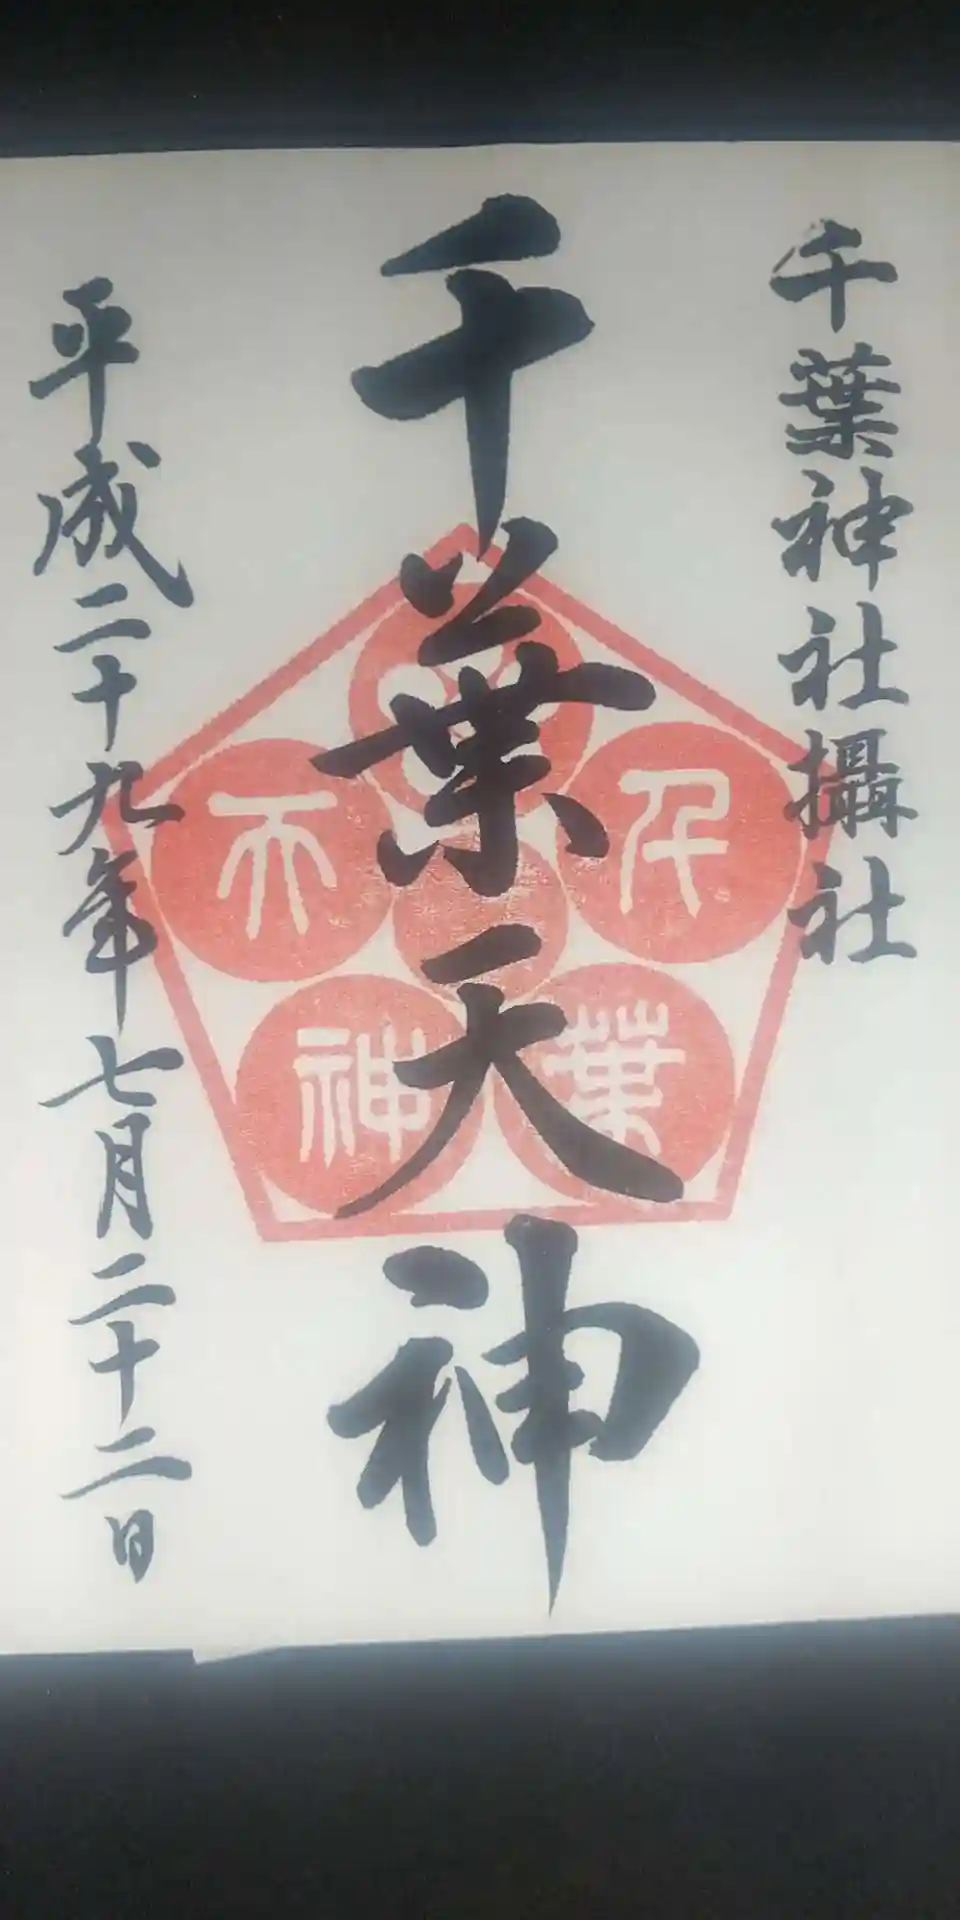 千葉神社攝社
千葉天神
平成二十九年七月二十二日
千葉天神